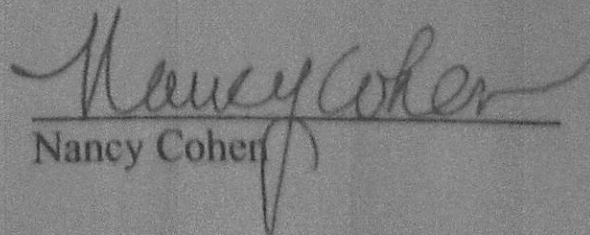 Nancy Cohen
Nancy Cohen